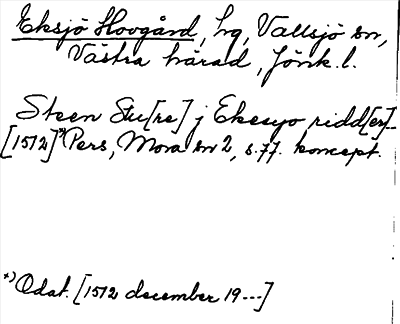 Eksjö Hovgård, hg, Vallsjö sn,
Västra härad, Jönk. l.
Steen Stu[re] j Ekesyo ridd[er]...
[1512]*) Pers, Mora sn 2, s. 77. koncept.
*) Odat. [1512 december 19---]